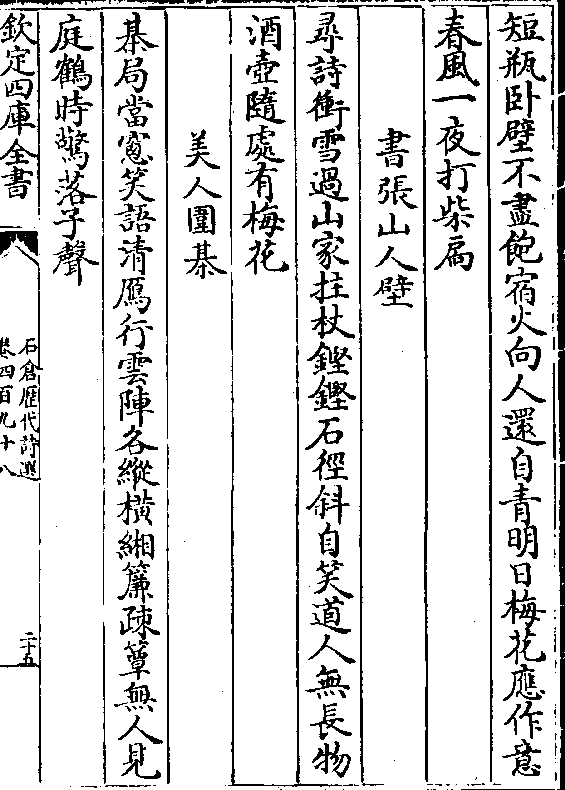 短瓶卧壁不盡飽宿火向人還自青明日梅花應作意
春風一夜打柴扃
書張山人壁
尋詩衝雪過山家拄杖鏗鏗石徑斜自笑道人無長物
酒壺隨處有梅花
美人圍棊
棊局當窻笑語清鴈行雲陣各縱横緗簾疎簟無人見
庭鶴時驚落子聲
欽定四庫全書
石倉歷代詩選
卷四百九十八
二十五